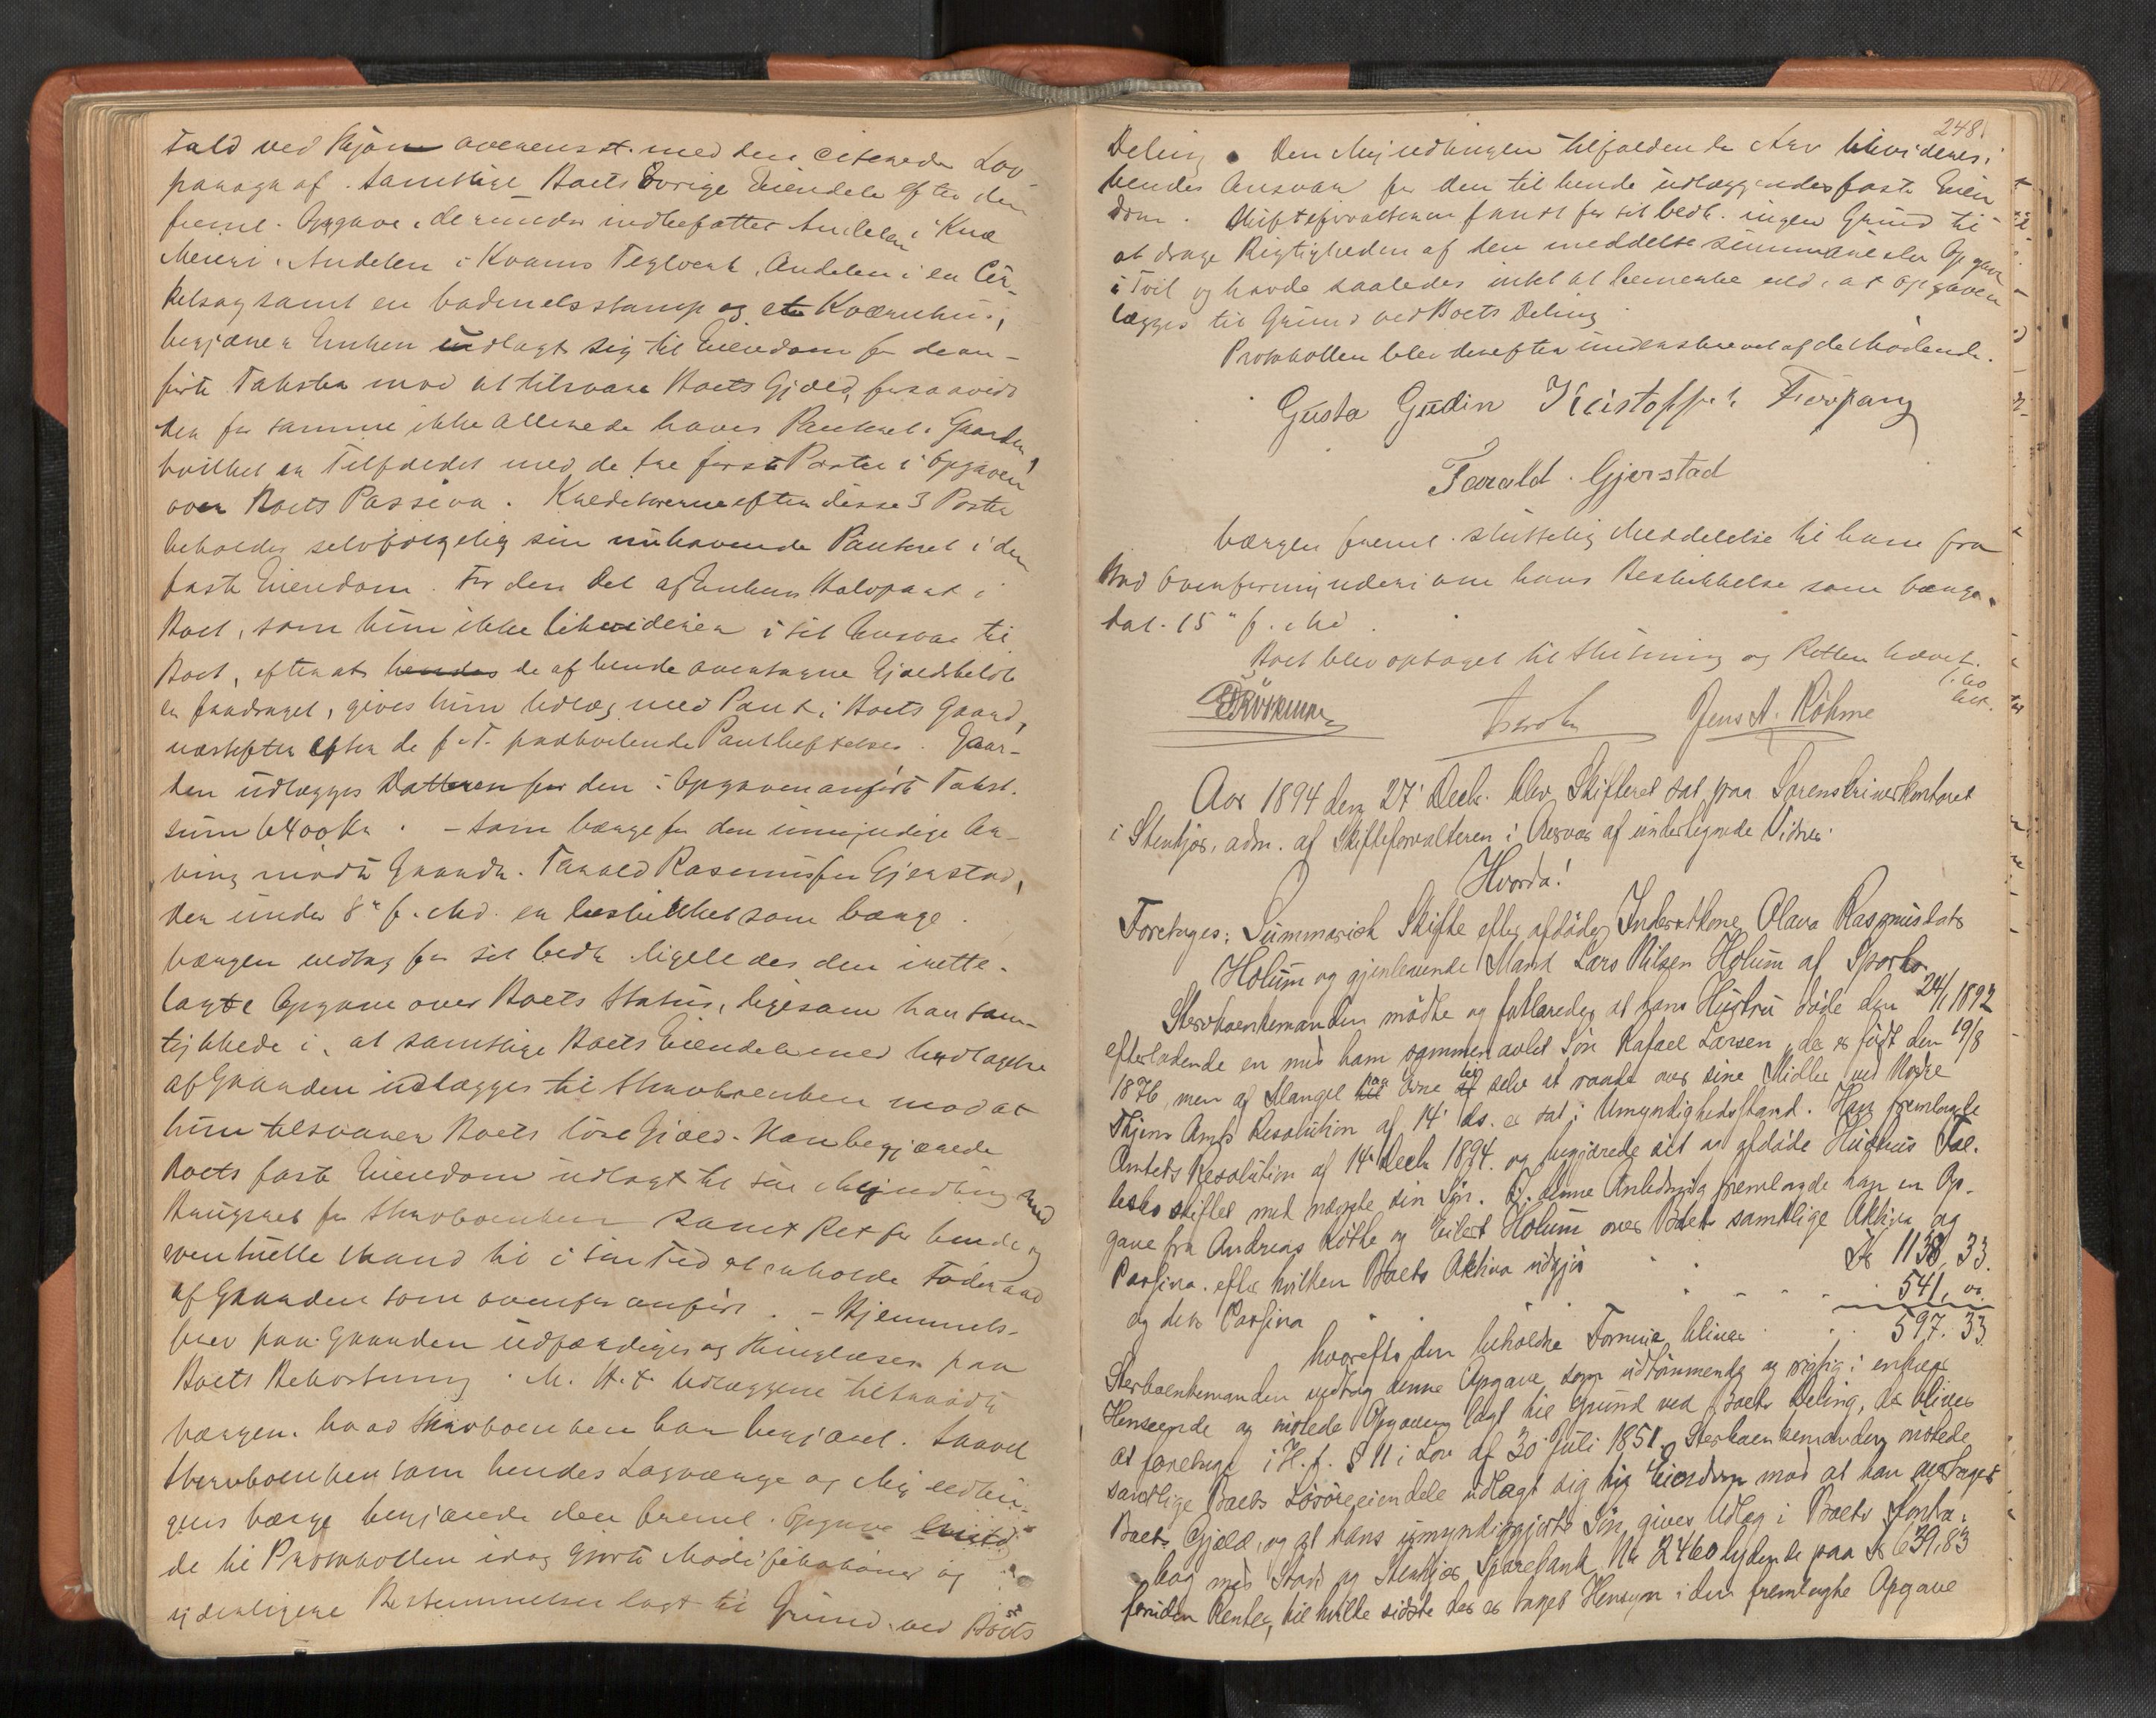 tald ved Skjøn overensst. med den citerede Lov-
paragraf. Samtlige Boets Øvrige Eiendele efter den
freml. Opgave, derunder indbefattet Andelen i
Meieri, Andelen i Kvams Teglverk, Andelen i en Cir-
kelsag samt en vadmelsstamp og et Kværnhus,
begjærer Enken udlagt sig til Eiendom for de an-
førte Takster mod at tilsvare Boets Gjæld, forsaavidt
der for samme ikke allerede haves Panteret i Gaarden,
hvilket er Tilfældet med de tre første Poster i Opgaven
over Boets Passiva. Kreditorerne efter disse 3 Poster
beholder selvfølgelig sin nuhavende Panteret i den
faste Eiendom. For den Del af Enkens Halvpart i
Boet, som hun ikke likviderer i sit Ansvar til
Boet, efterat hendes de af hende overtagne Gjældsbeløb
er fradraget, gives hun Udlæg med Pant i Boets Gaard,
næstefter efter de f. T. paahvilende Pantheftelser. Gaar-
den udlægges Datteren for den i Opgaven anførte Takst.
sum 6400 Kr. - Som Værge for den umyndige Ar-
ving mødte Gaardbr. Tarald Rasmussen Gjerstad,
der under 8de f. Md. er beskikket som Værge.
Værgen vedtog for sit Vedk. ligeledes den irette-
lagte Opgave over Boets Status, ligesom han sam-
tykkede i, at samtlige Boets Eiendele med Undtagelse
af Gaarden udlægges til Stervboenken mod at
hun tilsvarer Boets løse Gjæld. Han begjærede
Boets faste Eiendom udlagt til sin Myndling med
Brugsret for Stervboenken samt Ret for hende og
eventuelle Mand til i sin Tid at erholde Føderaad
af Gaarden som ovenfor anført. - Hjemmels-
brev paa Gaarden udfærdiges og thinglæses paa
Boets Bekostning. M. H. t. Udlæggene tiltraadte
Værgen, hvad Stervboenken har begjæret. Saavel
Stervboenken som hendes Lagværge og Myndlin-
gens Værge begjærede den freml. Opgave
de til Protokollen idag gjorte Modifikationer og
yderligere Bestemmelser lagt til Grund ved Boets
248
Deling. Den Myndlingen tilfaldende Arv likvideres i
hendes Ansvar for den til hende udlæggendes faste Eien
dom. Skifteforvalteren fandt for sit Vedk. ingen Grund til
at drage Rigtigheden af den meddelte summariske Opgave
i Tvil og havde saaledes intet at bemerke ved, at Opgaven
lægges til Grund ved Boets Deling.
Protokollen blev derefter underskrevet af de Mødende.
Gusta Gudin Kristoffer Fiorpang
Tarald Gjerstad
Værgen freml. sluttelig Meddelelse til ham fra
Stod Overformynderi om hans Beskikkelse som Værge,
dat. 15de f. Md.
Boet blev optaget til Slutning og Retten hævet.
Jens A. Röhme
Aar 1894 den 27' Decb. blev Skifteret sat paa Sorenskriverkontoret
i Stenkjær, adm. af Skifteforvalteren i Overvær af undertegnede Vidner.
Hvorda!
Foretages: Summarisk Skifte efter afdøde Inderstkone Olava Rasmusdatr
Holum og gjenlevende Mand Lars Nilsen Holum af Sparbo.
Stervboenkemanden mødte og forklarede, at hans Hustru døde den 24/1 1892
efterladende en med ham sammenavlet Søn Rafael Larsen, der er født den 19/8
1876, men af Mangel til paa Evne af til selv at raade over sine Midler ved Nordre
Thjems Amts Resolution af 14' ds. er sat i Umyndighedsstand. Han fremlagde
Amtets Resolution af 14' Decb 1894. og begjærede sit og afdøde Hustrus Fæl-
lesbo skiftet med nævnte sin Søn. I denne Anledning fremlagde han en Op-
gave fra Andreas Røthe og Eilert Holum over Boets samtlige Aktiva og
Passiva, efter hvilken Boets Aktiva udgjør Kr 1138,33.
og dets Passiva 541,00.
hvorefter den beholdne Formue bliver 597.33
Stervboenkemanden vedtog denne Opgave som udtømmende og rigtig i enhver
Henseende og ønskede Opgaven lagt til Grund ved Boets Deling, der bliver
at foretage i H. t. § 11 i Lov af 30 Juli 1851. Stervboenkemanden ønskede
samtlige Boets Løsøreeiendele udlagt sig til Eiendom mod at han overtager
Boets Gjæld, og at hans umyndiggjorte Søn gives Udlæg i Boets Kontra-
bog med Stod og Stenkjær Sparebank No 2460 lydende paa Kr 639,83
foruden Renter, til hvilke sidste der er taget Hensyn i den fremlagte Opgave